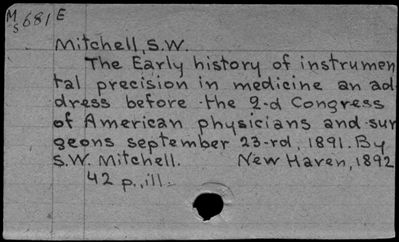 M/s 681 E
Mitchell, S.W.
The Early history of instrumen
tal precision in medicine an ad
dress before the 2-d Congress
of American physicians and sur
geons september 23-rd, 1891. By
S.W. Mitchell. New Haven, 1892
42 p., ill.